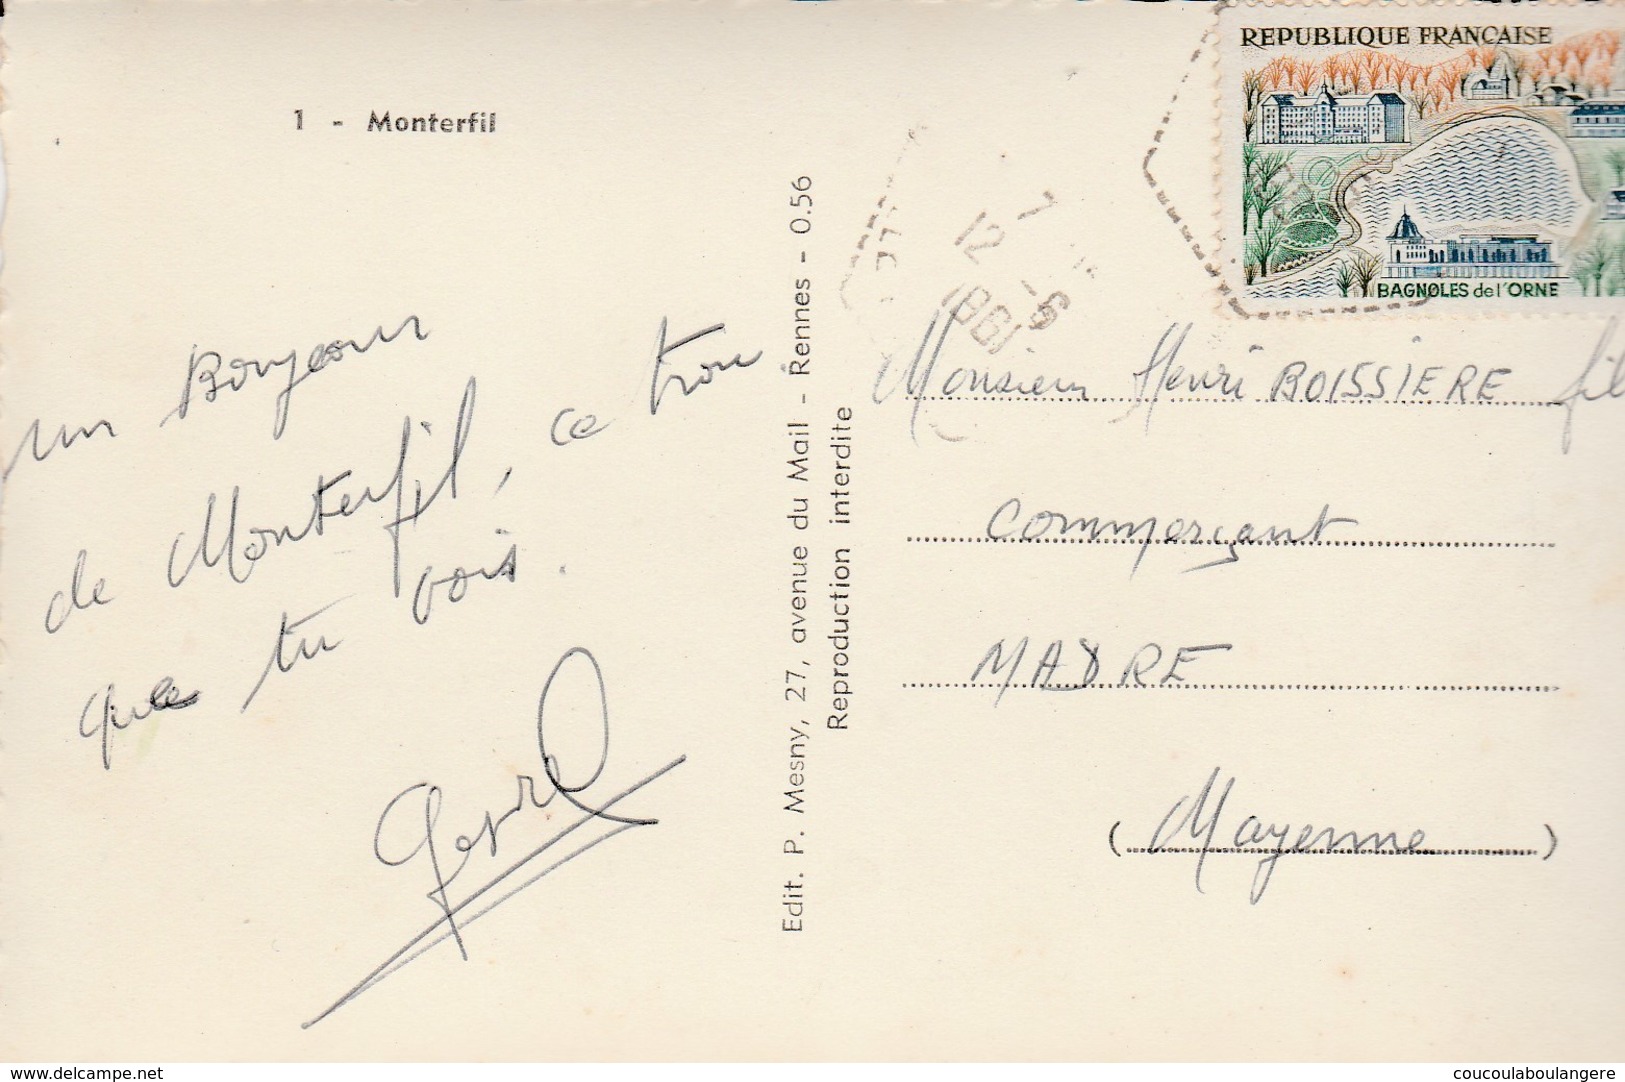 1 - Monterfil
REPUBLIQUE FRANCAISE
BAGNOLES de l'ORNE
7 12
1961
un Bonjour
de Monterfil, ce trou
que tu vois.
Edit. P. Mesny, 27, avenue du Mail - Rennes - 0.56
Reproduction interdite
Monsieur Henri BOISSIERE fil
Commerçant
MADRE
(Mayenne)
www.delcampe.net
coucoulaboulangere